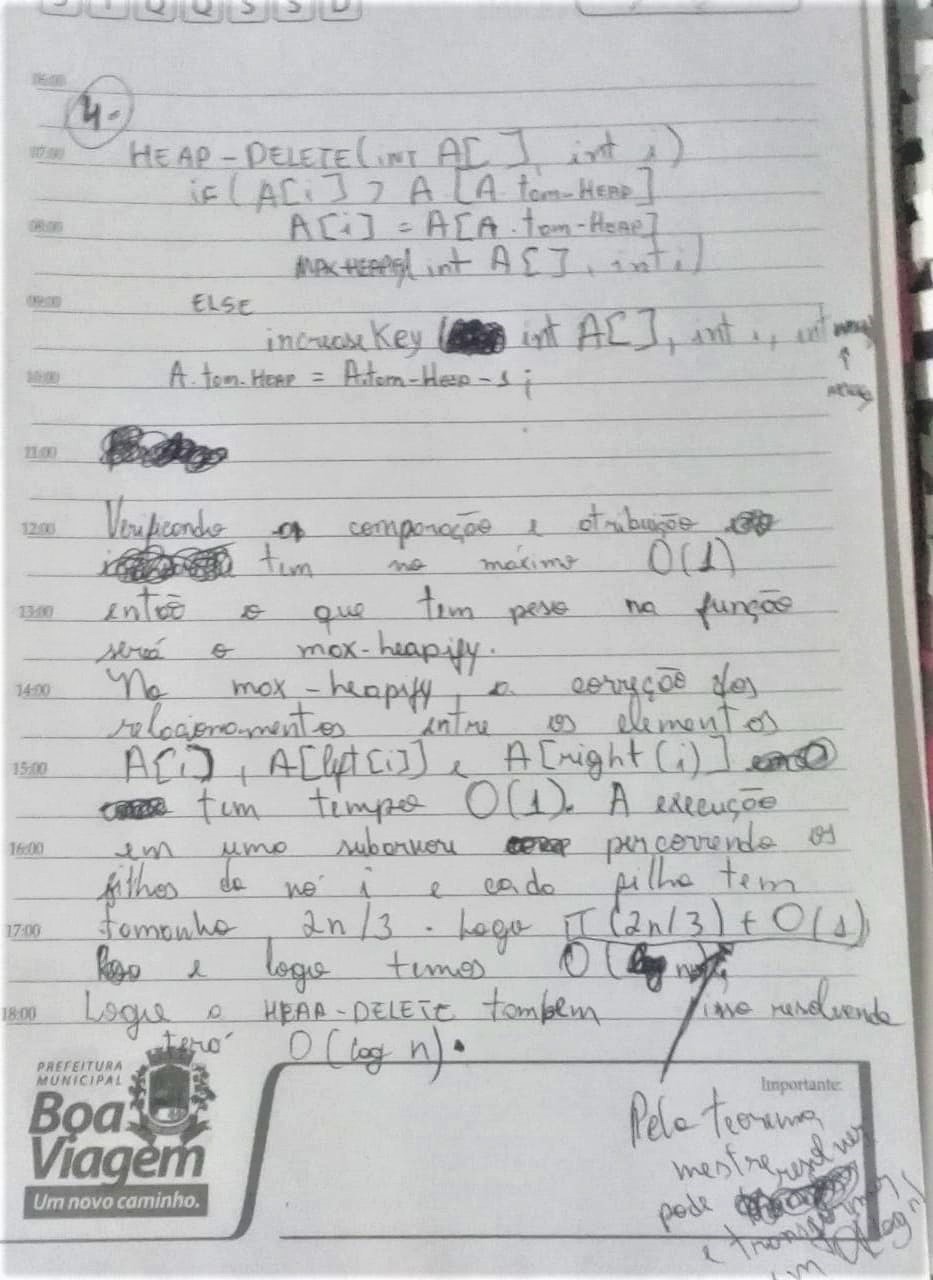 J T Q Q S S D
06:00
4-
07:00 HEAP-DELETE(INT A[ ], int i)
iF( A[i] > A [A tam-HEAP]
08:00 A[i] = A[A.tam-HEAP]
int A[ ], int i)
09:00 ELSE
increaseKey ( int A[ ], int i, int
10:00 A.tam.HEAP = A.tam-HEAP-1;
11:00
12:00 Verificando a comparação e atribuição
tem no máximo O(1)
13:00 então o que tem peso na função
será o max-heapify.
14:00 No max-heapify, a correção dos
relacionamentos entre os elementos
15:00 A[i], A[left[i]] e A[right(i)]
tem tempo O(1). A execução
16:00 em uma subarvore percorrendo os
filhos do nó i e cada filho tem
17:00 tamanho 2n/3. Logo T(2n/3) + O(1)
e logo temos O(
18:00 Logo o HEAP-DELETE tambem isso resolvendo
terá O(log n).
PREFEITURA
MUNICIPAL
Boa
Viagem
Um novo caminho.
Importante:
Pelo teorema
mestre resolver
pode
e